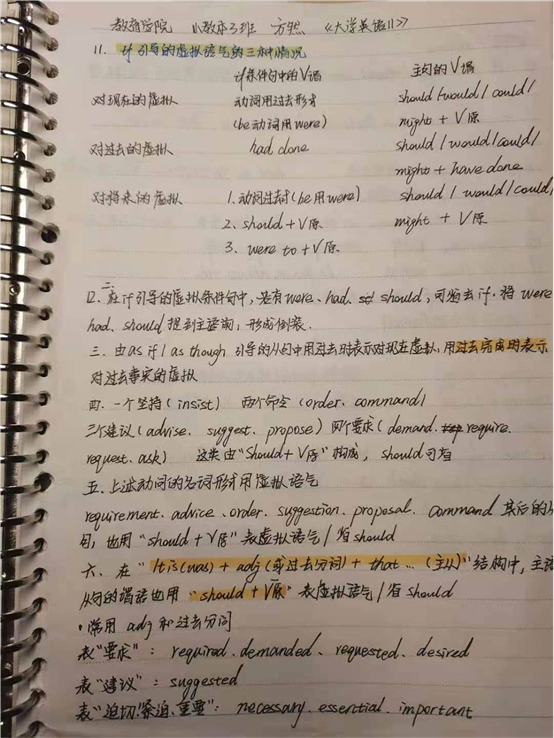 教育学院 小教本3班 方 《大学英语II》
11. if引导的虚拟语气的三种情况
if条件句中的V谓 主句的V谓
对现在的虚拟 动词用过去形式 should/would/could/
(be动词用were) might + V原
对过去的虚拟 had done should/would/could/
might + have done
对将来的虚拟 1.动词过去时(be用were) should/would/could/
2. should+V原 might + V原
3. were to +V原
12、二、在if引导的虚拟条件句中,若有were、had、should,可省去if.将were
had、should提到主语前,形成倒装.
三、由as if/as though 引导的从句中用过去时表示对现在虚拟,用过去完成时表示
对过去事实的虚拟
四、一个坚持(insist) 两个命令(order、command)
三个建议(advise、suggest、propose)四个要求(demand、require、
request、ask) 这类由"should+V原"构成,should可省
五、上述动词的名词形式用虚拟语气
requirement、advice、order、suggestion、proposal、command 其后的从
句,也用"should+V原"表虚拟语气/省should
六、在"It is(was)+adj(或过去分词)+that...(主从)"结构中,主语
从句的谓语也用"should+V原"表虚拟语气/省should
·常用adj和过去分词
表"要求":required、demanded、requested、desired
表"建议":suggested
表"迫切、紧迫、重要":necessary、essential、important